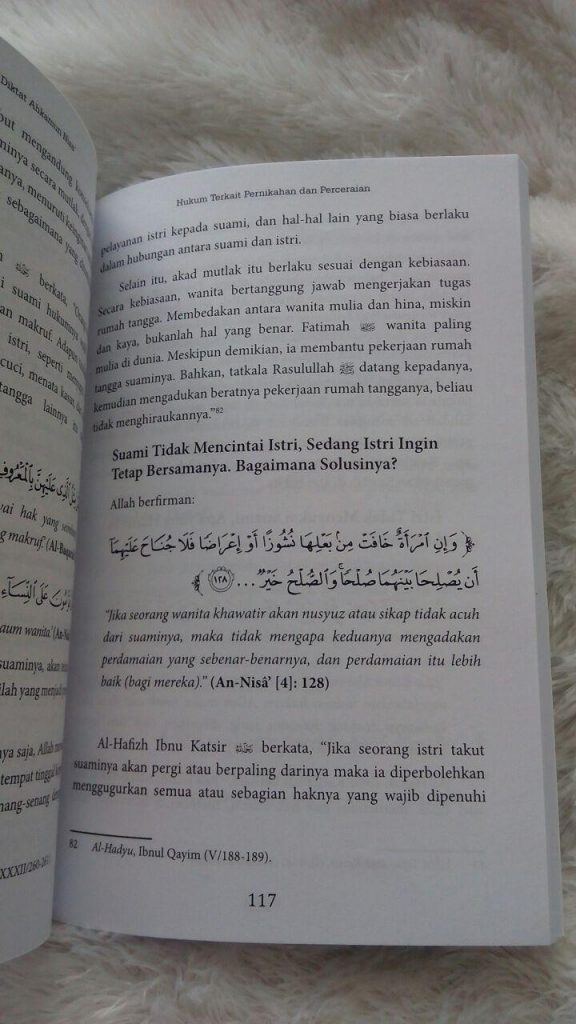 Diktat Ahkamun Nisa'
but mengandung
minya secara mutlak,
anya, menuruti
sebagaimana yang
berkata,
suami hukumnya
makruf. Adapun
istri, seperti
cuci, menata
tangga lainnya
ٱلَّذِى عَلَيْهِنَّ بِٱلْمَعْرُوفِ
yai hak yang
makruf." (Al-Baqarah
عَلَى ٱلنِّسَآءِ
aum wanita." (An-Nisâ'
suaminya, akan
ilah yang menjadi
nya saja, Allah
tempat tinggal
nang-senang
XXXII/260-261
Hukum Terkait Pernikahan dan Perceraian
pelayanan istri kepada suami, dan hal-hal lain yang biasa berlaku
dalam hubungan antara suami dan istri.
Selain itu, akad mutlak itu berlaku sesuai dengan kebiasaan.
Secara kebiasaan, wanita bertanggung jawab mengerjakan tugas
rumah tangga. Membedakan antara wanita mulia dan hina, miskin
dan kaya, bukanlah hal yang benar. Fatimah wanita paling
mulia di dunia. Meskipun demikian, ia membantu pekerjaan rumah
tangga suaminya. Bahkan, tatkala Rasulullah ﷺ datang kepadanya,
kemudian mengadukan beratnya pekerjaan rumah tangganya, beliau
tidak menghiraukannya."82
Suami Tidak Mencintai Istri, Sedang Istri Ingin
Tetap Bersamanya. Bagaimana Solusinya?
Allah berfirman:
﴿ وَإِنِ ٱمْرَأَةٌ خَافَتْ مِنۢ بَعْلِهَا نُشُوزًا أَوْ إِعْرَاضًا فَلَا جُنَاحَ عَلَيْهِمَآ
أَن يُصْلِحَا بَيْنَهُمَا صُلْحًا ۚ وَٱلصُّلْحُ خَيْرٌ ... ١٢٨ ﴾
"Jika seorang wanita khawatir akan nusyuz atau sikap tidak acuh
dari suaminya, maka tidak mengapa keduanya mengadakan
perdamaian yang sebenar-benarnya, dan perdamaian itu lebih
baik (bagi mereka)." (An-Nisâ' [4]: 128)
Al-Hafizh Ibnu Katsir berkata, "Jika seorang istri takut
suaminya akan pergi atau berpaling darinya maka ia diperbolehkan
menggugurkan semua atau sebagian haknya yang wajib dipenuhi
82 Al-Hadyu, Ibnul Qayim (V/188-189).
117